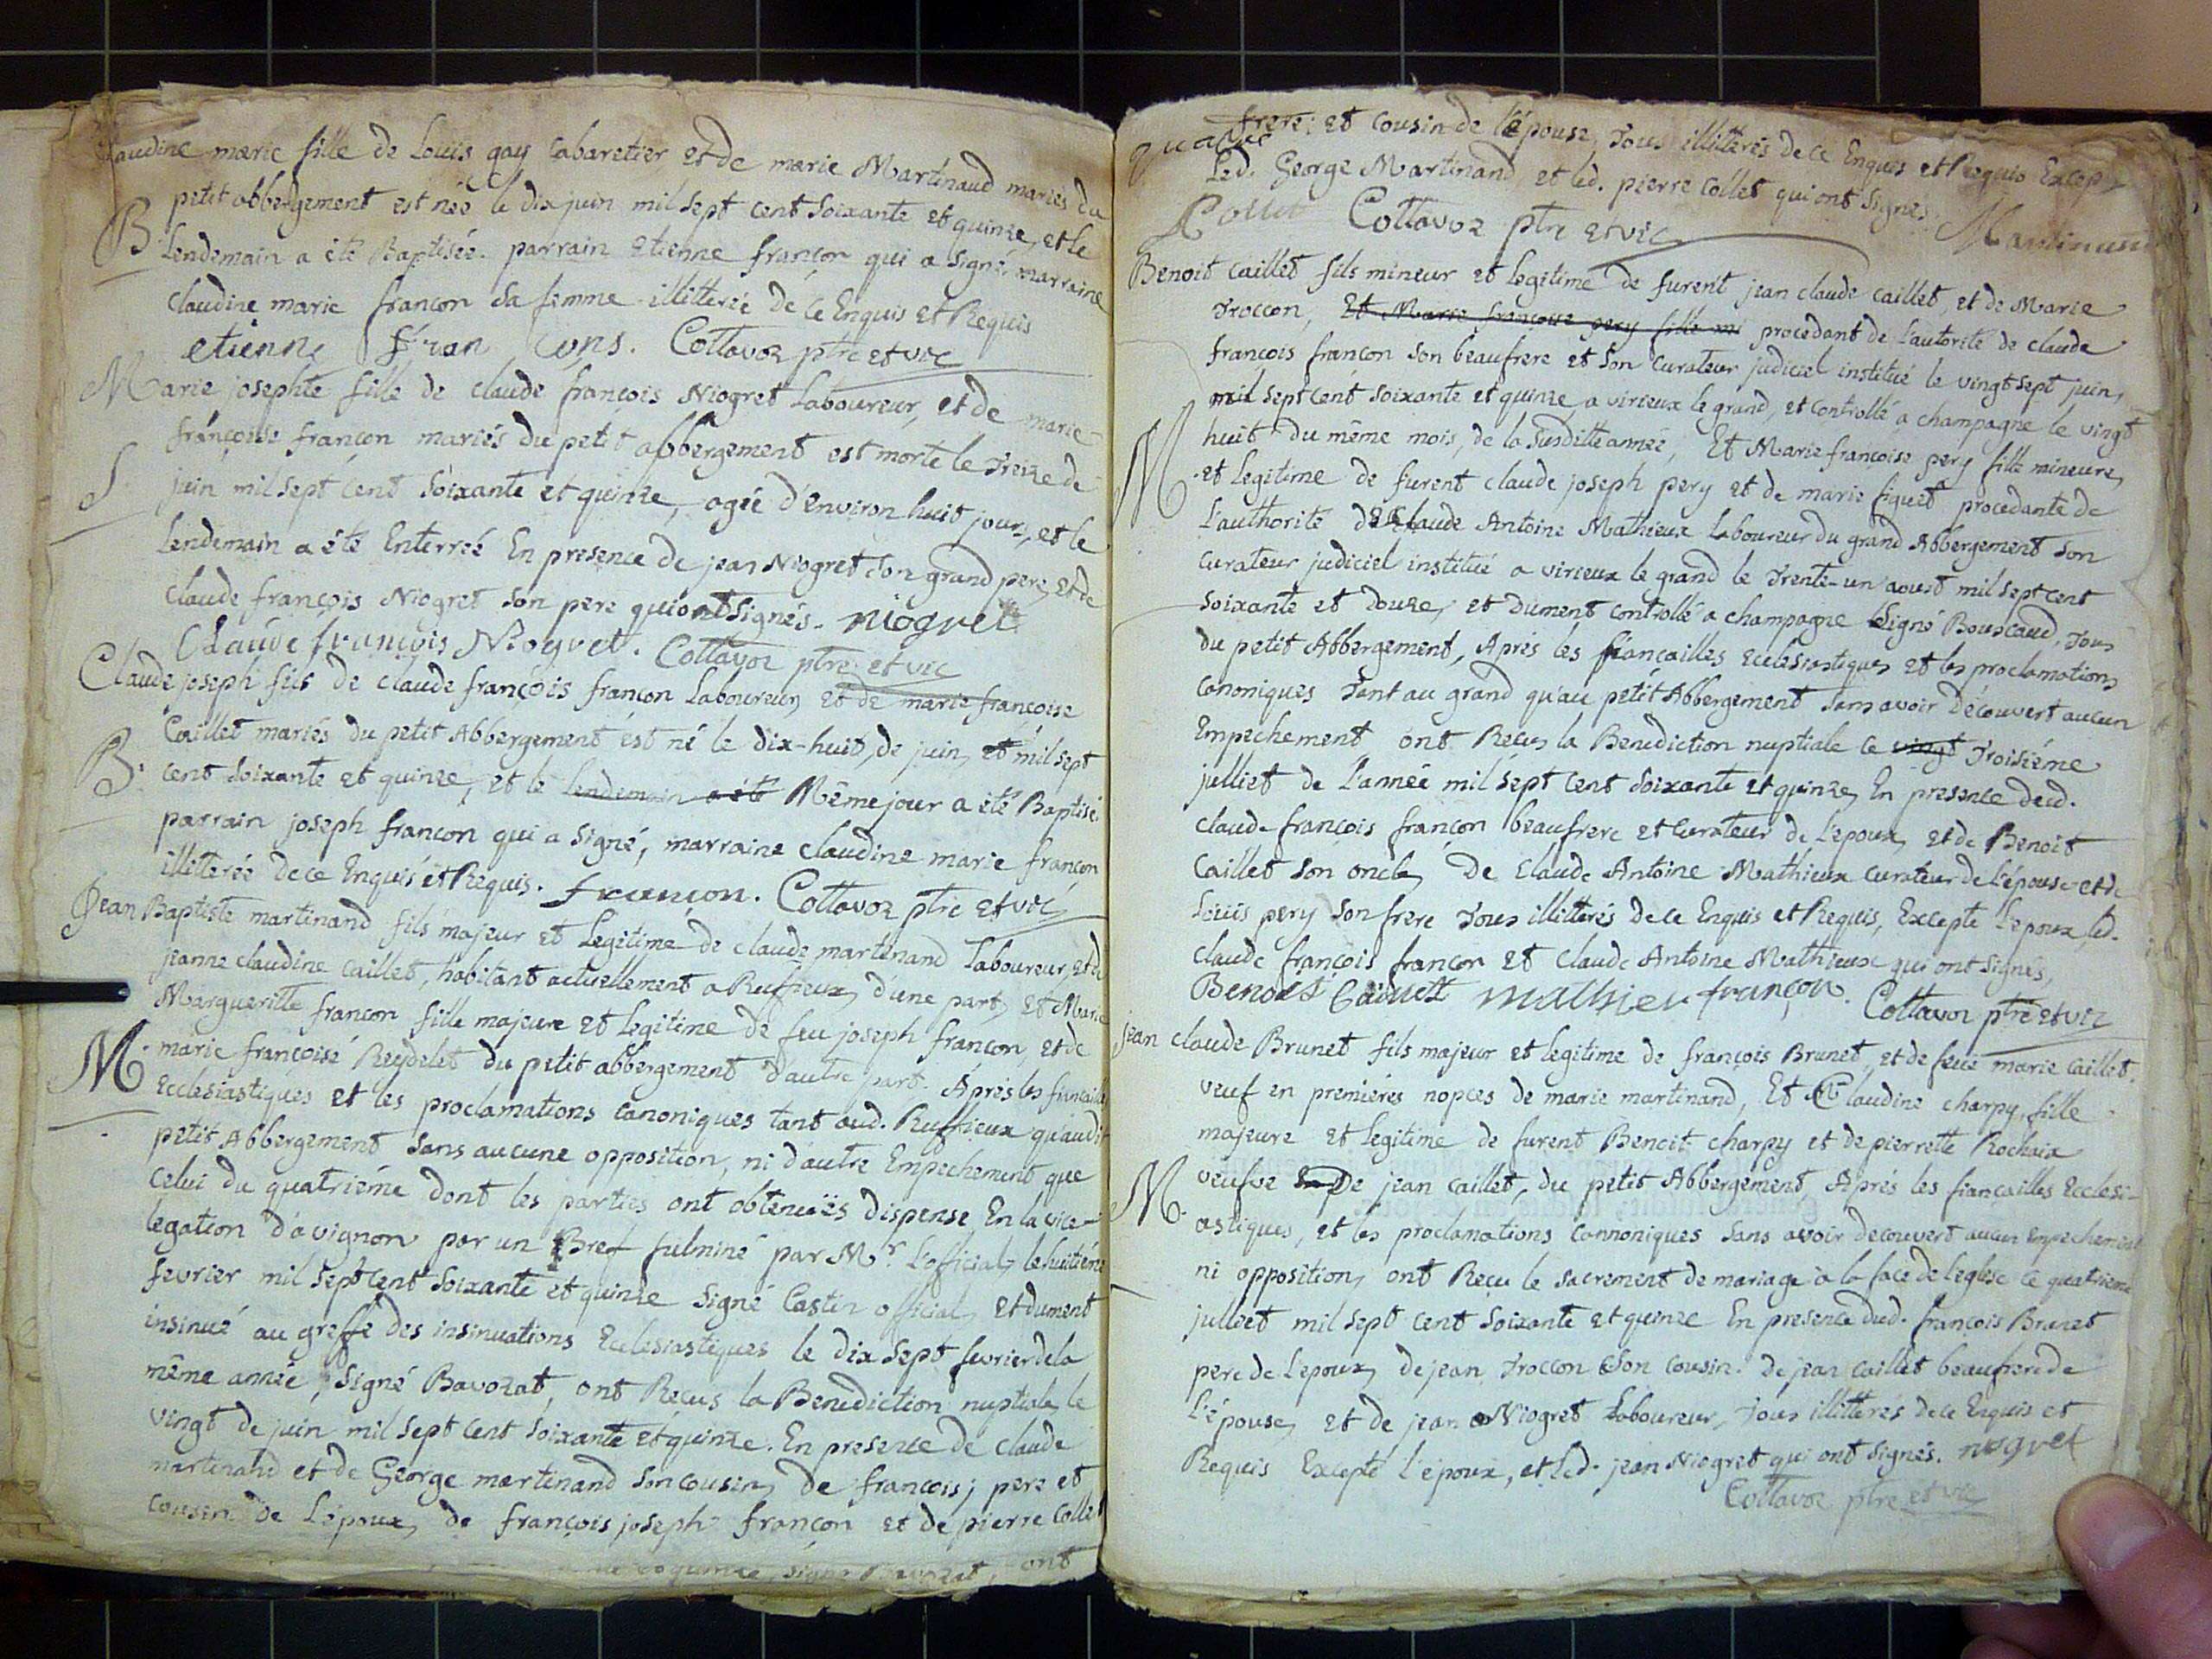 Claudine marie fille de Louis gay Cabaretier, et de marie Martinaud mariés du
petit abbergement est née le dix juin mil sept cent soixante et quinze, et le
B. Lendemain a été Baptisée. parrain etienne françon qui a signé marraine
claudine marie françon sa femme illitterée de ce Enquis et Requis
etienne fran cons. Collavoz ptre et vic
Marie josephte fille de claude françois Niogret Laboureur, et de marie
françoise françon mariés du petit abbergement est morte le treize de
S. juin mil sept cent soixante et quinze, agée d'environ huit jours, et le
Lendemain a été Enterreé En presence de jean Niogret son grand pere, et de
claude françois Niogret son pere qui ont signés. niogret
Claude françois Niogret. Collavoz ptre et vic
Claude joseph fils de claude françois françon Laboureur, et de marie françoise
Caillet mariés du petit Abbergement est né le dix-huit, de juin, et mil sept
B. cent soixante et quinze, et le lendemain a été Même jour a été Baptisé
parrain joseph françon qui a signé, marraine claudine marie françon
illitterée de ce Enquis et Requis. françon. Collavoz ptre et vic
Jean Baptiste martinand fils majeur et Legitime de claude martinand Laboureur, et de
jeanne claudine caillet, habitant actuellement a Ruffieux, d'une part, et Marie
Margueritte françon fille majeure et legitime de feu joseph françon, et de
M. marie françoise Reydelet du petit abbergement d'autre part. Après les fiancailles
Ecclesiastiques et les proclamations canoniques tant aud. Ruffieux qu'audit
petit Abbergement sans aucune opposition, ni d'autre Empechement que
celui du quatriéme dont les parties ont obtenuës dispense En la vice-
legation d'avignon par un Bref fulminé par Mr. L'official, le huitiéme
fevrier mil sept cent soixante et quinze signé Castin official, et dument
insinué au greffe des insinuations Ecclesiastiques le dix sept fevrier de la
même année, signé Bavozat, ont Recus la Benediction nuptiale, le
vingt de juin mil sept cent soixante et quinze. En presence de claude
martinand et de George martinand son cousin, de françois j pere et
cousin de L'époux, de françois joseph françon et de pierre Collet
signé Bavozat, ont
frere; et cousin de l'épouse, tous illitterés de ce Enquis et Requis Excep-
Led. George Martinand, et led. pierre collet qui ont signés.
Collet Collavoz ptre et vic Martinand
Benoit caillet fils mineur et legitime de furent jean claude caillet, et de Marie
Troccon, Et Marie françoise pery fille mi procedant de L'autorité de claude
françois françon son beaufrere et son curateur judiciel institué le vingt sept juin,
mil sept cent soixante et quinze, a virieux le grand, et controllé a champagne le vingt
huit du même mois, de la susditte année, Et Marie françoise pery fille mineure,
M. et legitime de furent claude joseph pery et de marie fiquet procedante de
L'authorité de Claude Antoine Mathieux Laboureur du grand Abbergement son
curateur judiciel institué a virieux le grand le Trente-un aoust mil sept cent
soixante et douze, et dument controllé a champagne signé Bouscaud, tous
du petit Abbergement, Après les fiançailles Ecclésiastiques et les proclamations
canoniques tant au grand qu'au petit Abbergement sans avoir découvert aucun
Empechement ont Reçus la Benediction nuptiale ce vingt Troisiéme
julliet de L'année mil sept cent soixante et quinze, En presence dud.
claude françois françon beaufrere et curateur de L'epoux, et de Benoit
Caillet son oncle, De Claude Antoine Mathieux curateur de L'épouse et de
Loüis pery son frere tous illitterés de ce Enquis et Requis, Excepte l'epoux, led.
claude françois françon et claude Antoine Mathieux qui ont signés,
Benoit Caiuett mathieu françon. Collavoz ptre et vic
jean claude Brunet fils majeur et legitime de françois Brunet, et de feüe marie caillet.
veuf en premiéres nopces de marie martinand, Et Claudine charpy, fille
majeure et legitime de furent Benoit charpy et de pierrette Rochaix
M. veufve De jean caillet, du petit Abbergement, Après les fiançailles Ecclesi-
astiques, et les proclamations cannoniques sans avoir decouvert aucun Empechement
ni opposition, ont Reçu le sacrement de mariage à la face de l'eglise ce quatrieme
julliet mil sept cent soixante et quinze En presence dud. françois Brunet
pere de Lepoux, de jean Troccon son cousin. de jean caillet beaufrere de
L'épouse, et de jean Niogret Laboureur, tous illitterés de ce Enquis et
Requis Excepté l'epoux, et led. jean Niogret qui ont signés. niogret
Collavoz ptre et vic